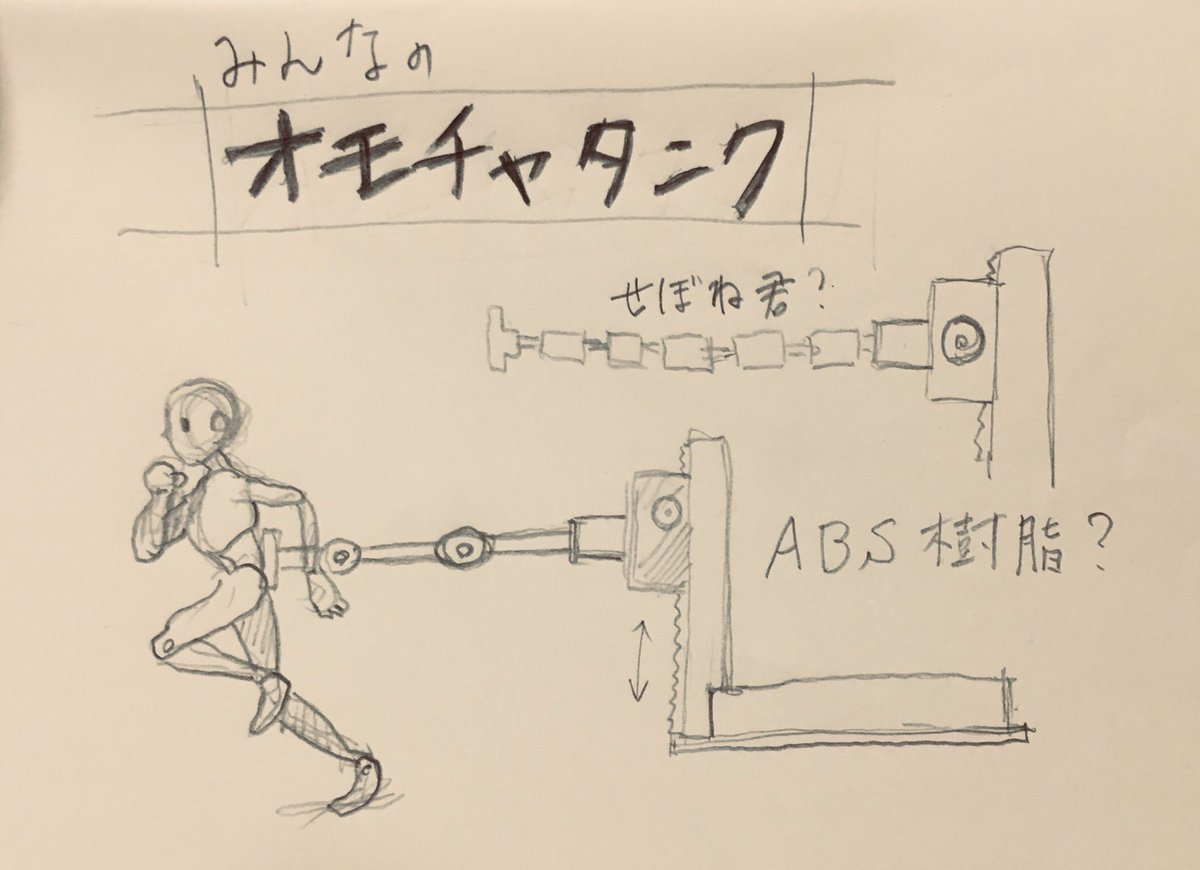 みんなの
オモチャタンク
せぼね君?
ABS樹脂?